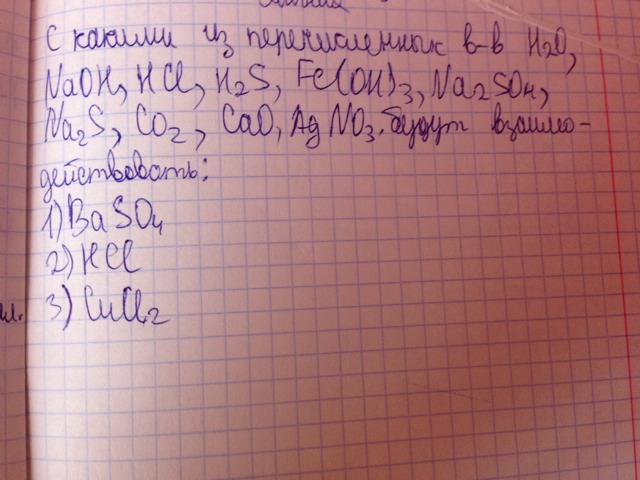 С какими из перечисленных в-в H₂O,
NaOH, HCl, H₂S, Fe(OH)₃, Na₂SO₄,
Na₂S, CO₂, CaO, AgNO₃. будут взаимо-
действовать:
1) BaSO₄
2) HCl
3) CuCl₂